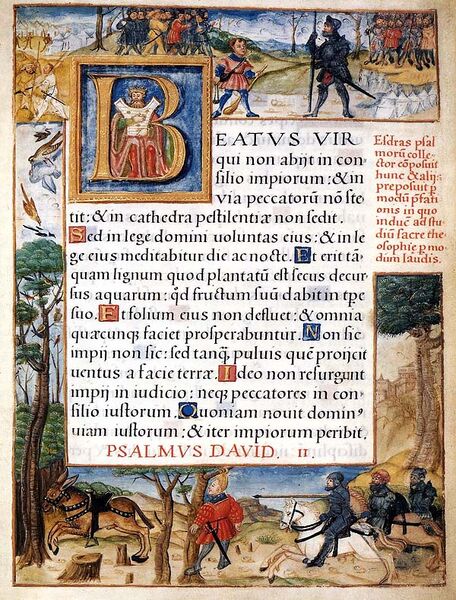 BEATVS VIR
qui non abijt in con-
silio impiorum : & in
via peccatorū nō ste
tit : & in cathedra pestilentiæ non sedit.
Sed in lege domini uoluntas eius : & in le
ge eius meditabitur die ac nocte. Et erit tā
quam lignum quod plantatū est secus decur
sus aquarum : qd fructum suū dabit in tpe
suo. Et folium eius non defluet : & omnia
quæcunq; faciet prosperabuntur. Non sic
impij non sic : sed tanq̃ puluis quē proijcit
uentus a facie terræ. Ideo non resurgunt
impij in iudicio : neq; peccatores in con-
silio iustorum. Quoniam nouit domin9
uiam iustorum : & iter impiorum peribit.
PSALMVS DAVID. II.
Esdras psal
morū collec
tor cōposuit
hunc & alijs
preposuit p
modū pfati
onis in quo
induc ad stu
diū sacre the
osophie p mo
dum laudis.